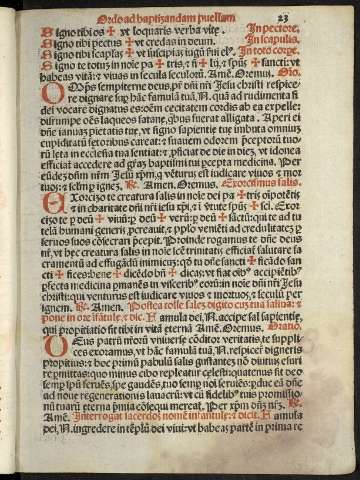 Ordo ad baptizandam puellam 23
Signo tibi os ✠ vt loquaris verba vite. In pectore.
Signo tibi pectus ✠ vt credas in deum. In scapulis.
Signo tibi scapłas ✠ vt suscipias iugū eius. In toto corpe.
Signo te totam in noīe pa ✠ tris, ⁊ fi ✠ lij, ⁊ spūs ✠ sancti: vt
habeas vitā: ⁊ viuas in secula seculoꝝ. Amē. Oremus. Oro.
OMps sempiterne deus, pr̄ dn̄i nr̄i Jesu christi respice-
re dignare sup hāc famulā tuā, N. quā ad rudimenta fi
dei vocare dignatus es: oēm cecitatem cordis ab ea expelle:
disrumpe oēs laqueos satane, qbus fuerat alligata. Aperi ei
dn̄e ianuaz pietatis tue, vt signo sapientie tue imbuta omniuz
cupiditatū fetoribus careat: ⁊ suauem odorem pceptoꝝ tuo-
rū leta in ecclesia tua sentiat: ⁊ pficiat de die in diez, vt idonea
efficiat accedere ad graz baptismi tui pcepta medicina. Per
eūdez dn̄m nr̄m Jesū xp̄m, q venturus est iudicare viuos ⁊ mor
tuos: ⁊ seclm p ignez. ℟. Amen. Oremus. Exorcismus salis.
EXorcizo te creatura salis in noīe dei pa ✠ tris oīpotētis
⁊ in charitate dn̄i nr̄i iesu xp̄i, ⁊ ī virtute spūs ✠ sci. Exor
cizo te p deū ✠ viuū: p deū ✠ verū: p deū ✠ sāctū: qui te ad tu
telā humani generis pcreauit, ⁊ pplo venieti ad credulitatez p
seruos suos cōsecrari pcepit. Proinde rogamus te dn̄e deus
nr̄, vt hec creatura salis in noīe scē trinitatis efficiat salutare sa
cramentū ad effugādū inimicuz: qd tu dn̄e sancti ✠ ficādo san
cti ✠ fices: bene ✠ dicēdo bn̄ ✠ dicas: vt fiat oībꝰ accipietibꝰ
pfecta medicina pmanēs in visceribꝰ eorū: in noīe dn̄i nr̄i Jesu
christi: qui venturus est iudicare viuos ⁊ mortuos, ⁊ seculū per
ignem. ℟. Amen. Postea tolle sales digito cuz tua saliua: ⁊
pone in ore īfātule, ⁊ dic. Famula dei, N. accipe sal sapientie,
qui propitiatio fit tibi in vitā eternā Amē. Oremus. Oratio.
DEus patrū nr̄orū vniuerse cōditor veritatis, te suppli-
ces exoramus, vt hāc famulā tuā, N. respicere digneris
propitius: ⁊ hoc primū pabulū salis gustantez nō diutius esuri
re pmittas: quo minus cibo repleatur celesti: quatenus sit deo
semp spū feruēs, spe gaudēs, tuo semp noī seruiēs: pduc eā dn̄e
ad noue regenerationis lauacrū: vt cū fidelibꝰ tuis promissio-
nū tuarū eterna pmia cōsequi mereat. Per xp̄m dn̄z nr̄z. ℟.
Amē. Interrogat sacerdos nomē infātule: ⁊ dicit. Famula
dei, N. ingredere in tēplū dei viui: vt habeas partē in prima re